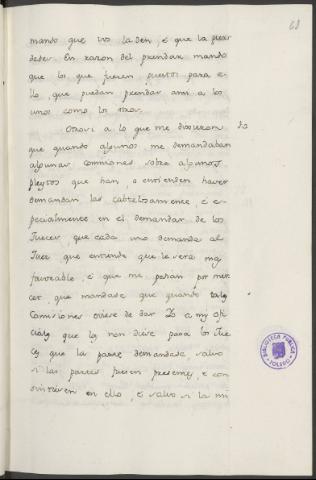 68
mando que vos la den, é que la fixier
deber. En razon del prendar mando
que los que fueren puestos para e-
llo, que puedan prendar ansi a los
unos como los otros.
Otrosi a lo que me dixieron
que quando algunos me demandaban
algunas comisiones sobre algunos
pleytos que han, o entienden haver
demandan las cabtelosamente, é es-
pecialmente en el demandar de los
Jueces, que cada uno demanda al
Juez que entiende que le sera mas
favorable, é que me pedian por mer
cet, que mandase que quando tales
Comisiones oviese de dar a my ofi
ciales que la non diese para los Jue
ces que la parte demandase, salvo
si las partes fuesen presentes, e con
sintiesen en ello, é salvo si la mi
BIBLIOTECA PUBLICA
TOLEDO